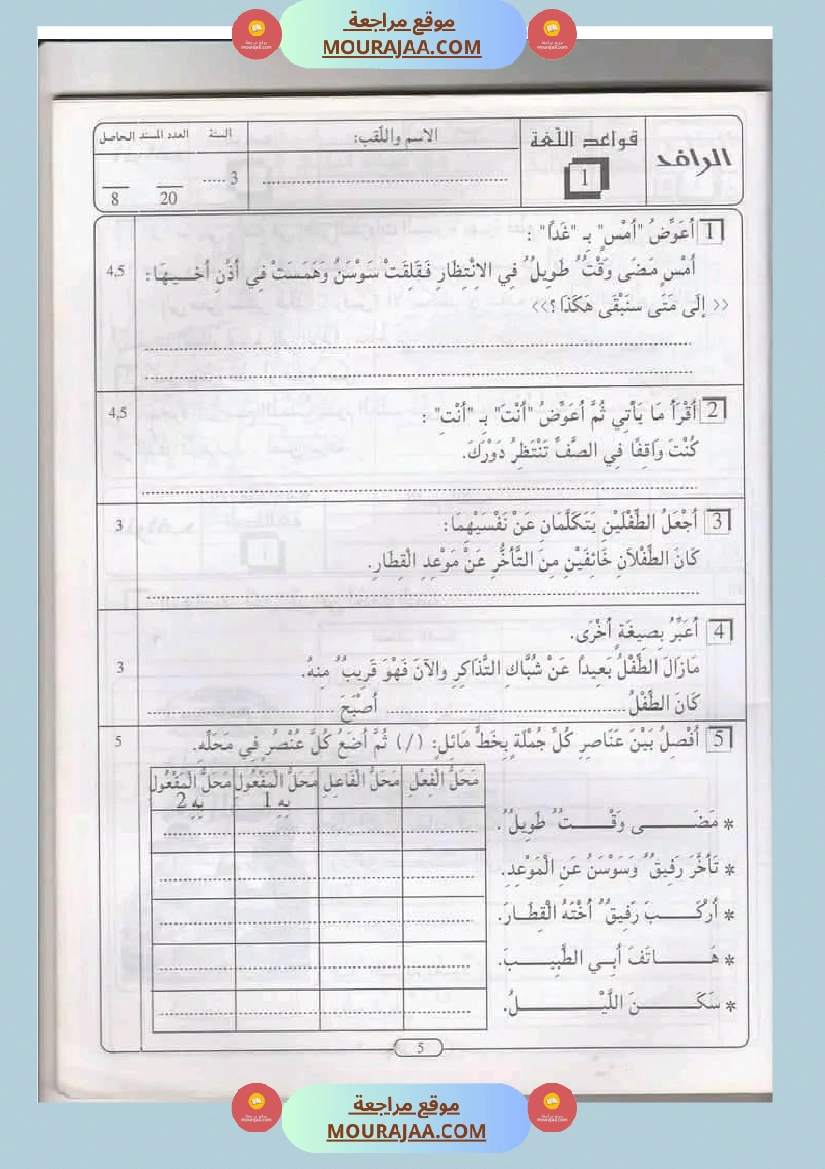 موقع مراجعة
MOURAJAA.COM
الرافد
قواعد اللّغة
1
الاسم واللّقب:
السنة
3 .....
العدد المسند
20
الحاصل
8
1 أُعَوِّضُ "أَمْسِ" بِـ "غَدًا" :
4,5
أَمْسِ مَضَى وَقْتٌ طَوِيلٌ فِي الاِنْتِظَارِ فَقَلِقَتْ سَوْسَنُ وَهَمَسَتْ فِي أُذُنِ أَخِيهَا:
<< إِلَى مَتَى سَنَبْقَى هَكَذَا؟>>
2 أَقْرَأُ مَا يَأْتِي ثُمَّ أُعَوِّضُ "أَنْتَ" بِـ "أَنْتِ" :
4,5
كُنْتَ وَاقِفًا فِي الصَّفِّ تَنْتَظِرُ دَوْرَكَ.
3 أَجْعَلُ الطِّفْلَيْنِ يَتَكَلَّمَانِ عَنْ نَفْسَيْهِمَا:
3
كَانَ الطِّفْلاَنِ خَائِفَيْنِ مِنَ التَّأَخُّرِ عَنْ مَوْعِدِ الْقِطَارِ.
4 أُعَبِّرُ بِصِيغَةٍ أُخْرَى.
3
مَازَالَ الطِّفْلُ بَعِيداً عَنْ شُبَّاكِ التَّذَاكِرِ والآنَ فَهْوَ قَرِيبٌ مِنهُ.
كَانَ الطِّفْلُ .......... أَصْبَحَ ..........
5 أَفْصِلُ بَيْنَ عَنَاصِرِ كُلِّ جُمْلَةٍ بِخَطٍّ مَائِلٍ: (/) ثُمَّ أَضَعُ كُلَّ عُنْصُرٍ فِي مَحَلِّهِ.
5
مَحَلُّ الْفِعْلِ
مَحَلُّ الْفَاعِلِ
مَحَلُّ الْمَفْعُولِ بِهِ 1
مَحَلُّ الْمَفْعُولِ بِهِ 2
* مَضَـــى وَقْـــتٌ طَوِيلٌ.
* تَأَخَّرَ رَفِيقٌ وَسَوْسَنُ عَنِ الْمَوْعِدِ.
* أَرْكَـــبَ رَفِيقٌ أُخْتَهُ الْقِطَـارَ.
* هَـــاتَفَ أَبِـي الطَّبِيـــبَ.
* سَكَـــنَ اللَّيْـــلُ.
5
موقع مراجعة
MOURAJAA.COM